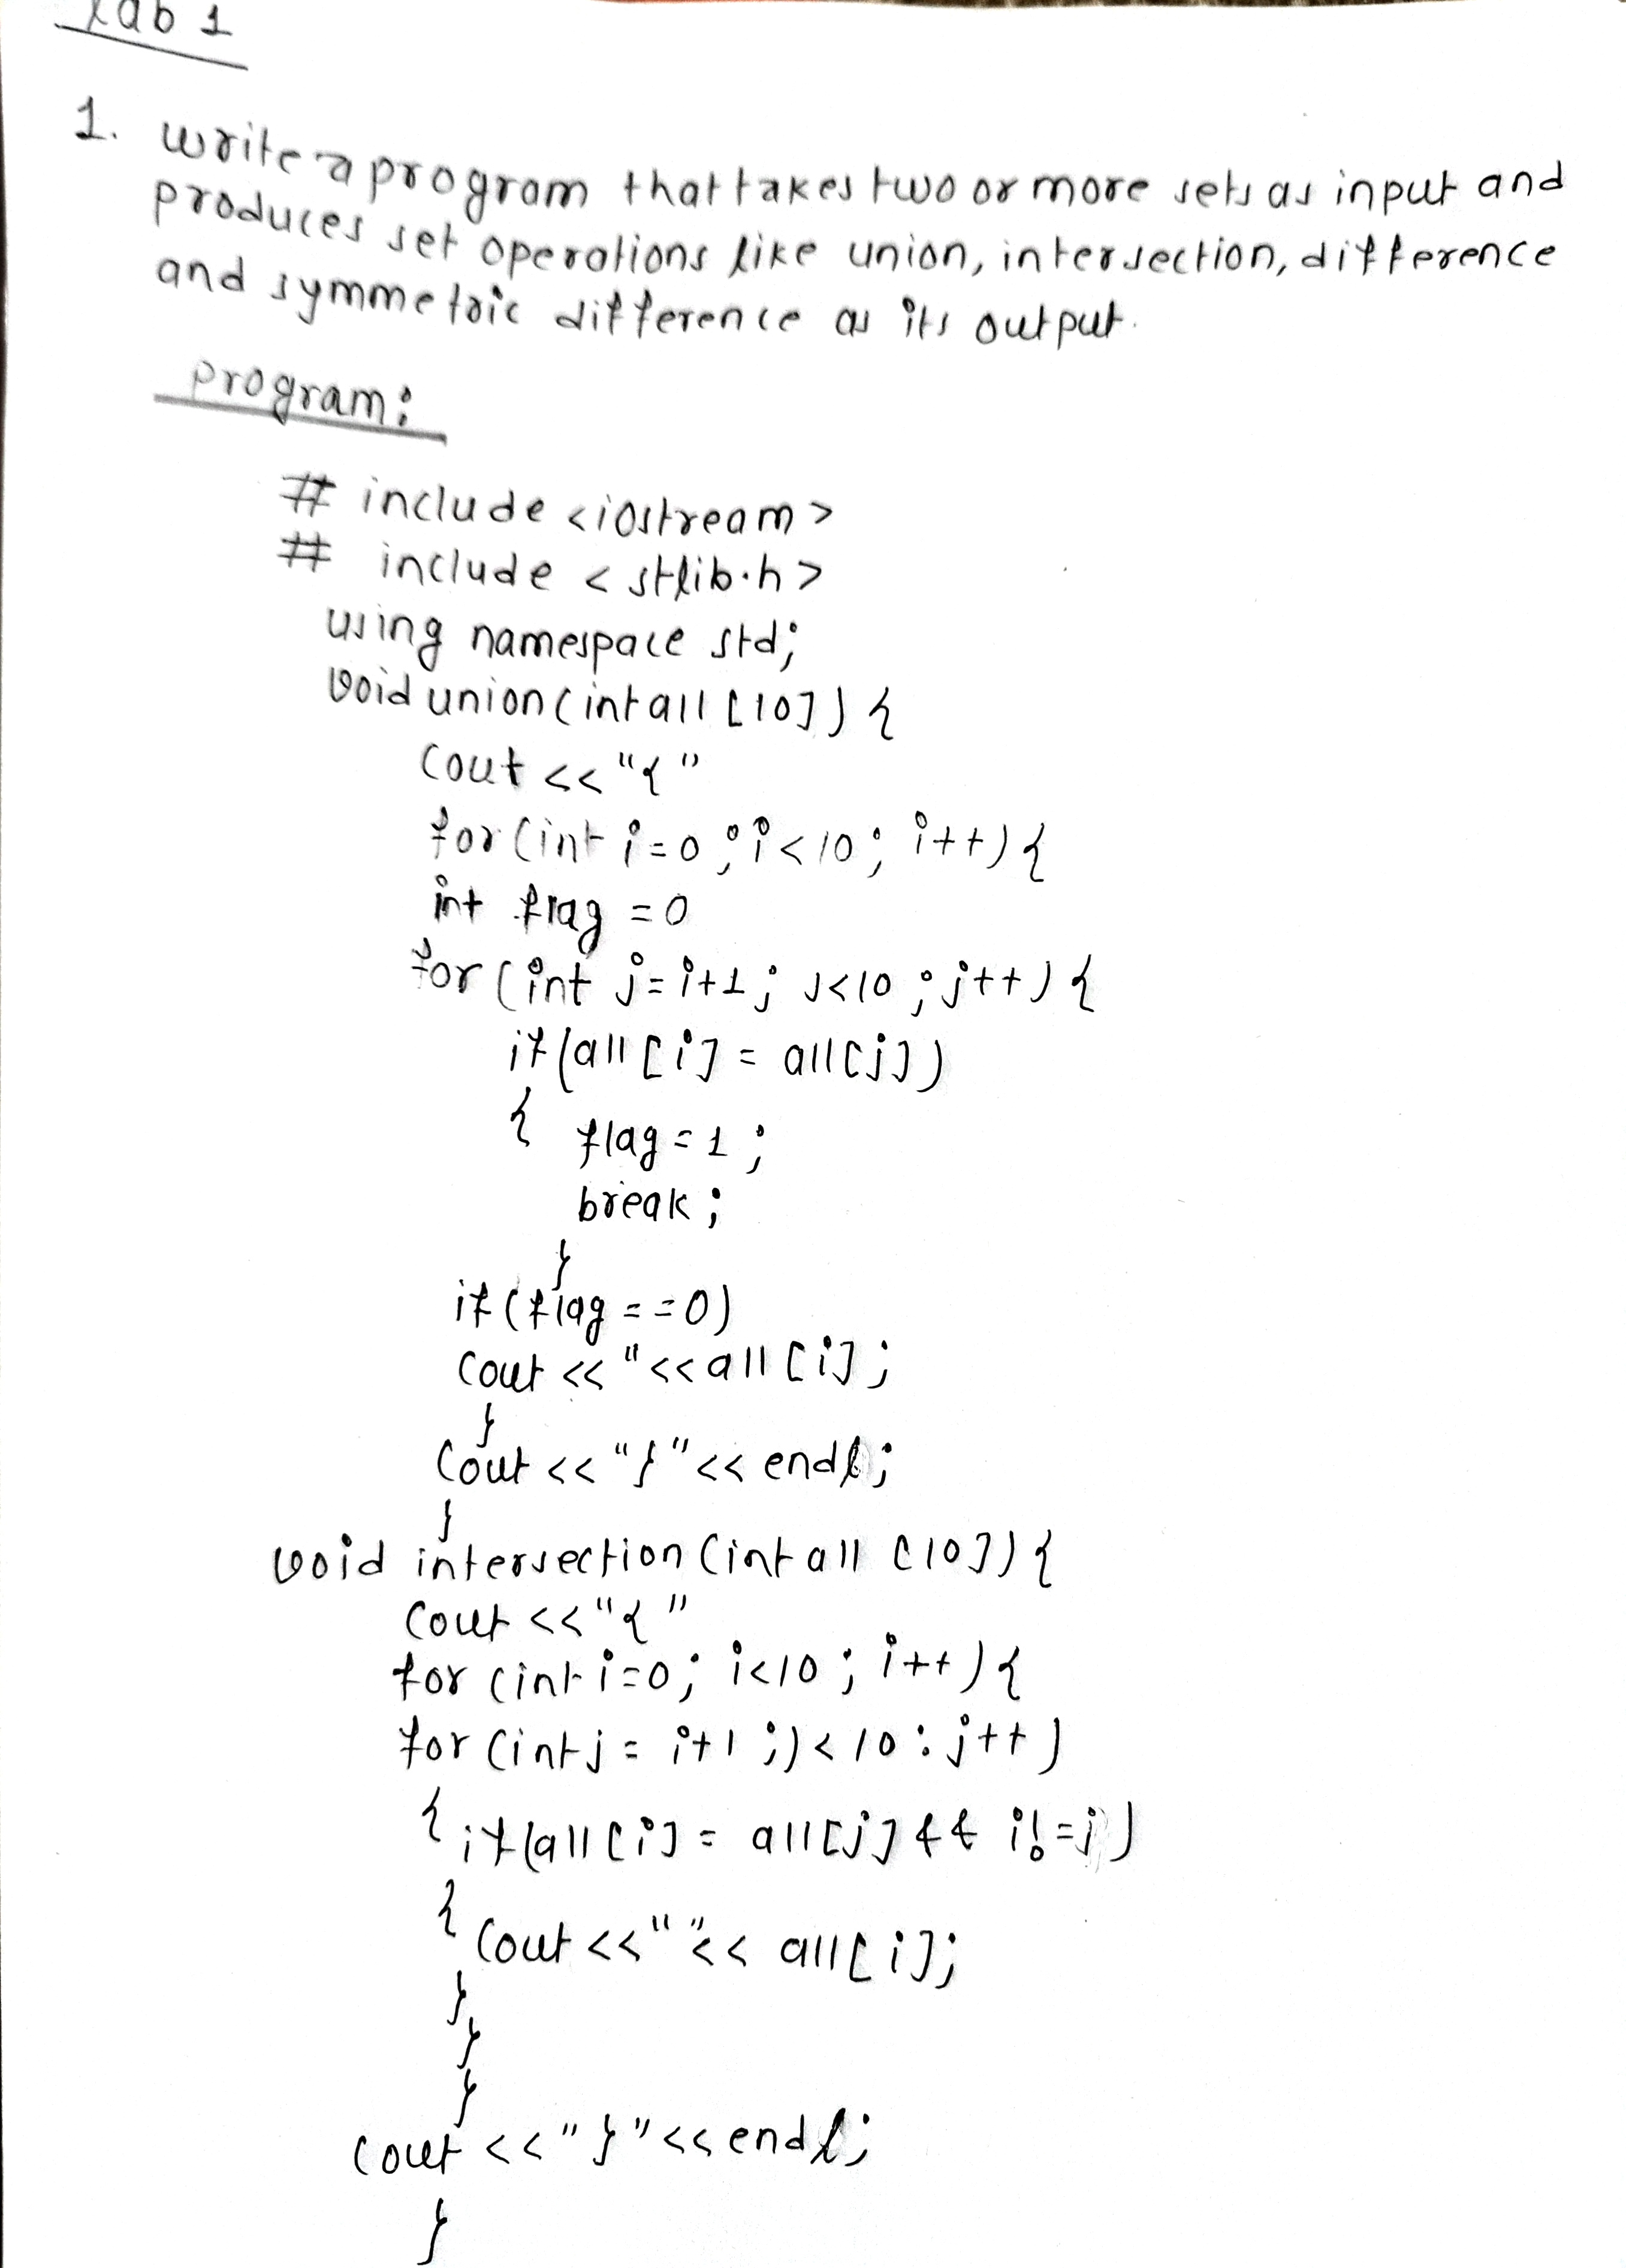 Lab 1
1. write a program that takes two or more sets as input and
produces set operations like union, intersection, difference
and symmetric difference as its output.
program:
# include <iostream>
# include <stlib.h>
using namespace std;
void union(int all [10]) {
cout << "{ "
for (int i=0; i<10; i++) {
int flag = 0
for (int j=i+1; j<10; j++) {
if(all[i] = all[j])
{ flag = 1;
break;
}
if (flag == 0)
cout << "<<all[i];
}
cout << "}"<< endl;
}
void intersection (int all [10]) {
cout <<"{ "
for (int i=0; i<10; i++) {
for (int j = i+1;j<10:j++)
{ if(all[i] = all[j] && i!=j)
{ cout <<" "<< all[i];
}
}
}
cout << "}"<< endl;
}